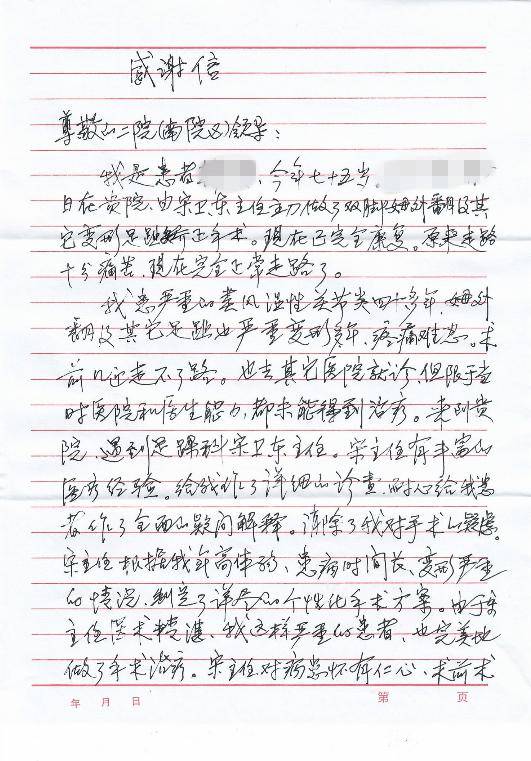 感谢信
尊敬的二院(南院区)领导:
我是患者 、今年七十五岁、
日在贵院、由宋卫东主任主刀做了双脚姆外翻及其
它变形足趾矫正手术。现在已完全康复。原来走路
十分痛苦、现在完全正常走路了。
我患严重的类风湿性关节炎四十多年、姆外
翻及其它足趾也严重变形多年、疼痛难忍。术
前几近走不了路。也去其它医院就诊、但限于当
时医院和医生能力、都未能得到治疗。来到贵
院、遇到足踝科宋卫东主任。宋主任有丰富的
医疗经验。给我作了详细的诊查、耐心给我患
者作了全面的疑问解释。消除了我对手术的疑虑。
宋主任根据我年高体弱、患病时间长、变形严重
的情况、制定了详尽的个性化手术方案。由于宋
主任医术精湛、我这样严重的患者、也完美地
做了手术治疗。宋主任对病患怀有仁心、术前术
年 月 日 第 页